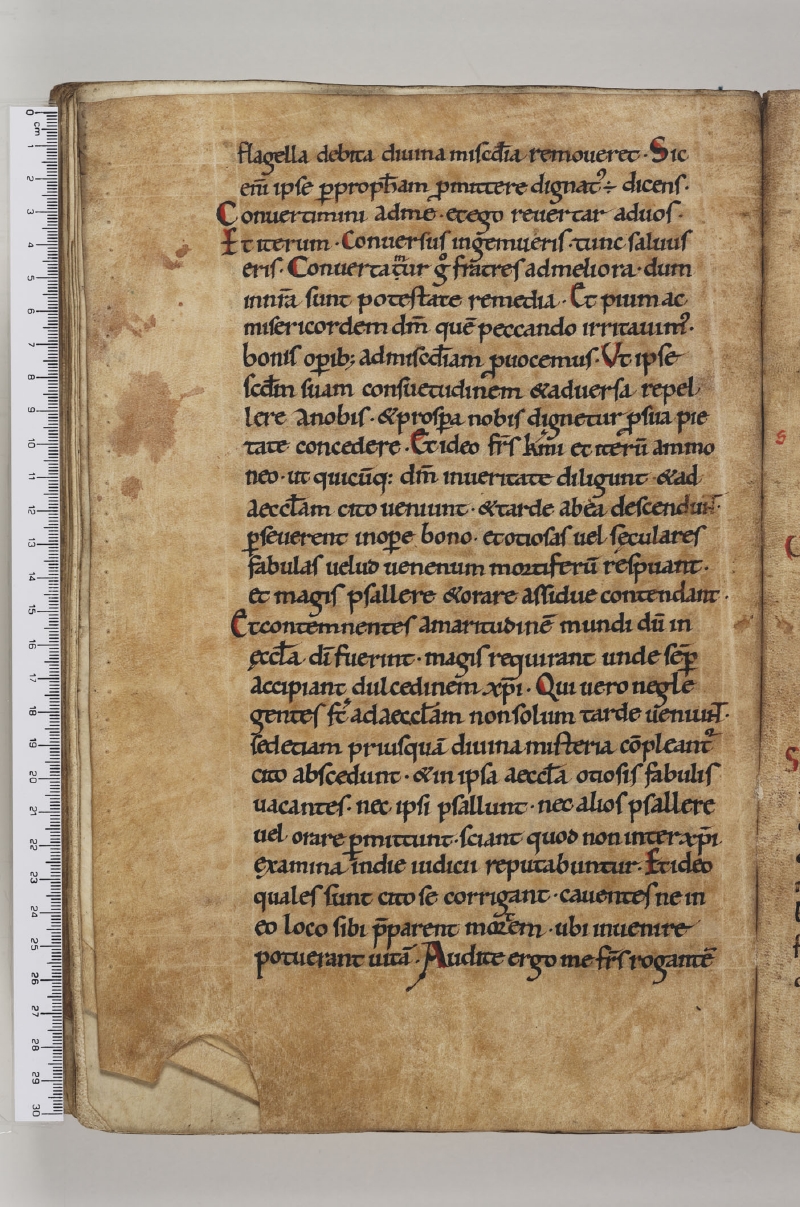 flagella debita diuina misc̄dia remoueret · Sic
em̄ ipse ꝑproph̄am ꝓmittere dignat᷒ ÷ dicens ·
Conuertimini adme · etego reuertar aduos ·
Et iterum · Conuersus ingemueris · tunc saluus
eris · Conuertamur gͦ fratres admeliora · dum
innr̄a sunt potestate remedia · Et pium ac
misericordem dm̄ quē peccando irritauim᷒ ·
bonis oꝑib; admisc̄diam ꝓuocemus · Vt ipse
scd̄m suam consuetudinem &aduersa repel
lere anobis · &prosꝑa nobis dignetur ꝓsua pie
tate concedere · Et ideo fr̄s km̄i et iterū ammo
neo · ut quicūq: dm̄ inueritate diligunt · &ad
aeccl̄am cito ueniunt · &tarde abea descendunt ·
ꝑseuerent inoꝑe bono · etotiosas uel seculares
fabulas uelud uenenum mortiferū respuant ·
et magis psallere &orare assidue contendant ·
Etcontemnentes amaritudinē mundi dū in
ęccl̄a dī fuerint · magis requirant unde semꝑ
accipiant dulcedinem xp̄i · Qui uero negle
gentes st̄ adaeccl̄am nonsolum tarde ueniunt ·
sedetiam priusquā diuina misteria cōpleant᷒
cito abscedunt · &in ipsa aeccl̄a otiosis fabulis
uacantes · nec ipsi psallunt · nec alios psallere
uel orare ꝑmittunt · sciant quod non inter xp̄i
examina indie iudicii reputabuntur · Et ideo
quales sunt cito se corrigant · cauentes ne in
eo loco sibi p̄parent mortem · ubi inuenire
potuerant uitā · Audite ergo me fr̄s rogantē
0 cm
1
2
3
4
5
6
7
8
9
10
11
12
13
14
15
16
17
18
19
20
21
22
23
24
25
26
27
28
29
30